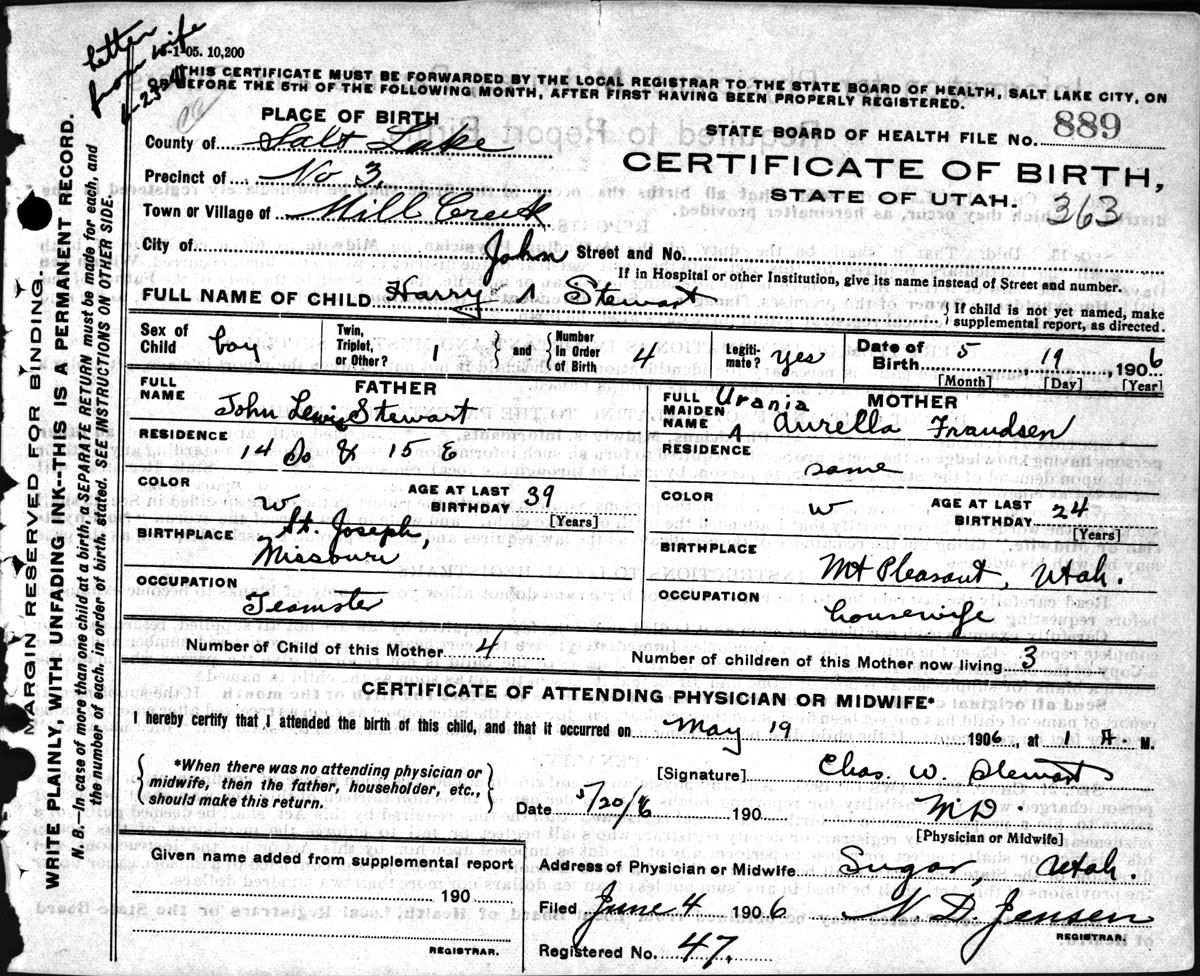 letter
from wife
10-1-05. 10,200
THIS CERTIFICATE MUST BE FORWARDED BY THE LOCAL REGISTRAR TO THE STATE BOARD OF HEALTH, SALT LAKE CITY, ON
OR BEFORE THE 5TH OF THE FOLLOWING MONTH, AFTER FIRST HAVING BEEN PROPERLY REGISTERED.
PLACE OF BIRTH
STATE BOARD OF HEALTH FILE NO. 889
County of Salt Lake
CERTIFICATE OF BIRTH,
Precinct of No 3
STATE OF UTAH. 363
Town or Village of Mill Creek
City of Street and No.
If in Hospital or other Institution, give its name instead of Street and number.
John
FULL NAME OF CHILD Harry Stewart { If child is not yet named, make supplemental report, as directed.
Sex of Child boy Twin, Triplet, or Other? 1 and Number In Order of Birth 4 Legitimate? Yes Date of Birth 5 19 1906
[Month] [Day] [Year]
FATHER
FULL NAME John Lewis Stewart
RESIDENCE
14 So & 15 E
COLOR W AGE AT LAST BIRTHDAY 39
[Years]
BIRTHPLACE St. Joseph,
Missouri
OCCUPATION
Teamster
MOTHER
FULL MAIDEN NAME Urania
Aurella Frandsen
RESIDENCE
same
COLOR W AGE AT LAST BIRTHDAY 24
[Years]
BIRTHPLACE
Mt Pleasant, Utah.
OCCUPATION
housewife
Number of Child of this Mother 4 Number of children of this Mother now living 3
CERTIFICATE OF ATTENDING PHYSICIAN OR MIDWIFE*
I hereby certify that I attended the birth of this child, and that it occurred on May 19 1906, at 1 A. M.
{ *When there was no attending physician or midwife, then the father, householder, etc., should make this return. }
[Signature] Chas. W. Stewart
Date 5/20/6 190 M.D.
[Physician or Midwife]
Given name added from supplemental report
190
REGISTRAR.
Address of Physician or Midwife Sugar, Utah.
Filed June 4 1906 N. D. Jensen
REGISTRAR.
Registered No. 47.
MARGIN RESERVED FOR BINDING.
WRITE PLAINLY, WITH UNFADING INK--THIS IS A PERMANENT RECORD.
N. B.—In case of more than one child at a birth, a SEPARATE RETURN must be made for each, and
the number of each, in order of birth, stated. SEE INSTRUCTIONS ON OTHER SIDE.